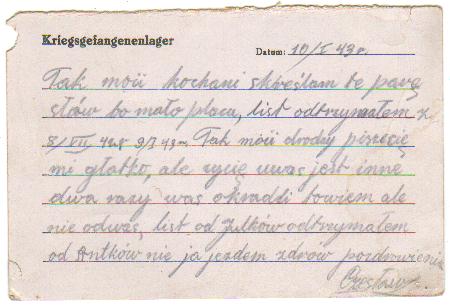 Kriegsgefangenenlager
Datum: 10/I 43 r.
Tak moii kochani skreślam te parę
słów bo mało placu, list odtrzymałem z
8/VII 42 r 9/I 43 r. Tak moii drodzy piszecię
mi głatko, ale życię uwas jest inne
dwa razy was okradli towiem ale
nie odwas, list od Julków odtrzymałem
od Antków nie ja jezdem zdrów pozdrowienia
Czesław